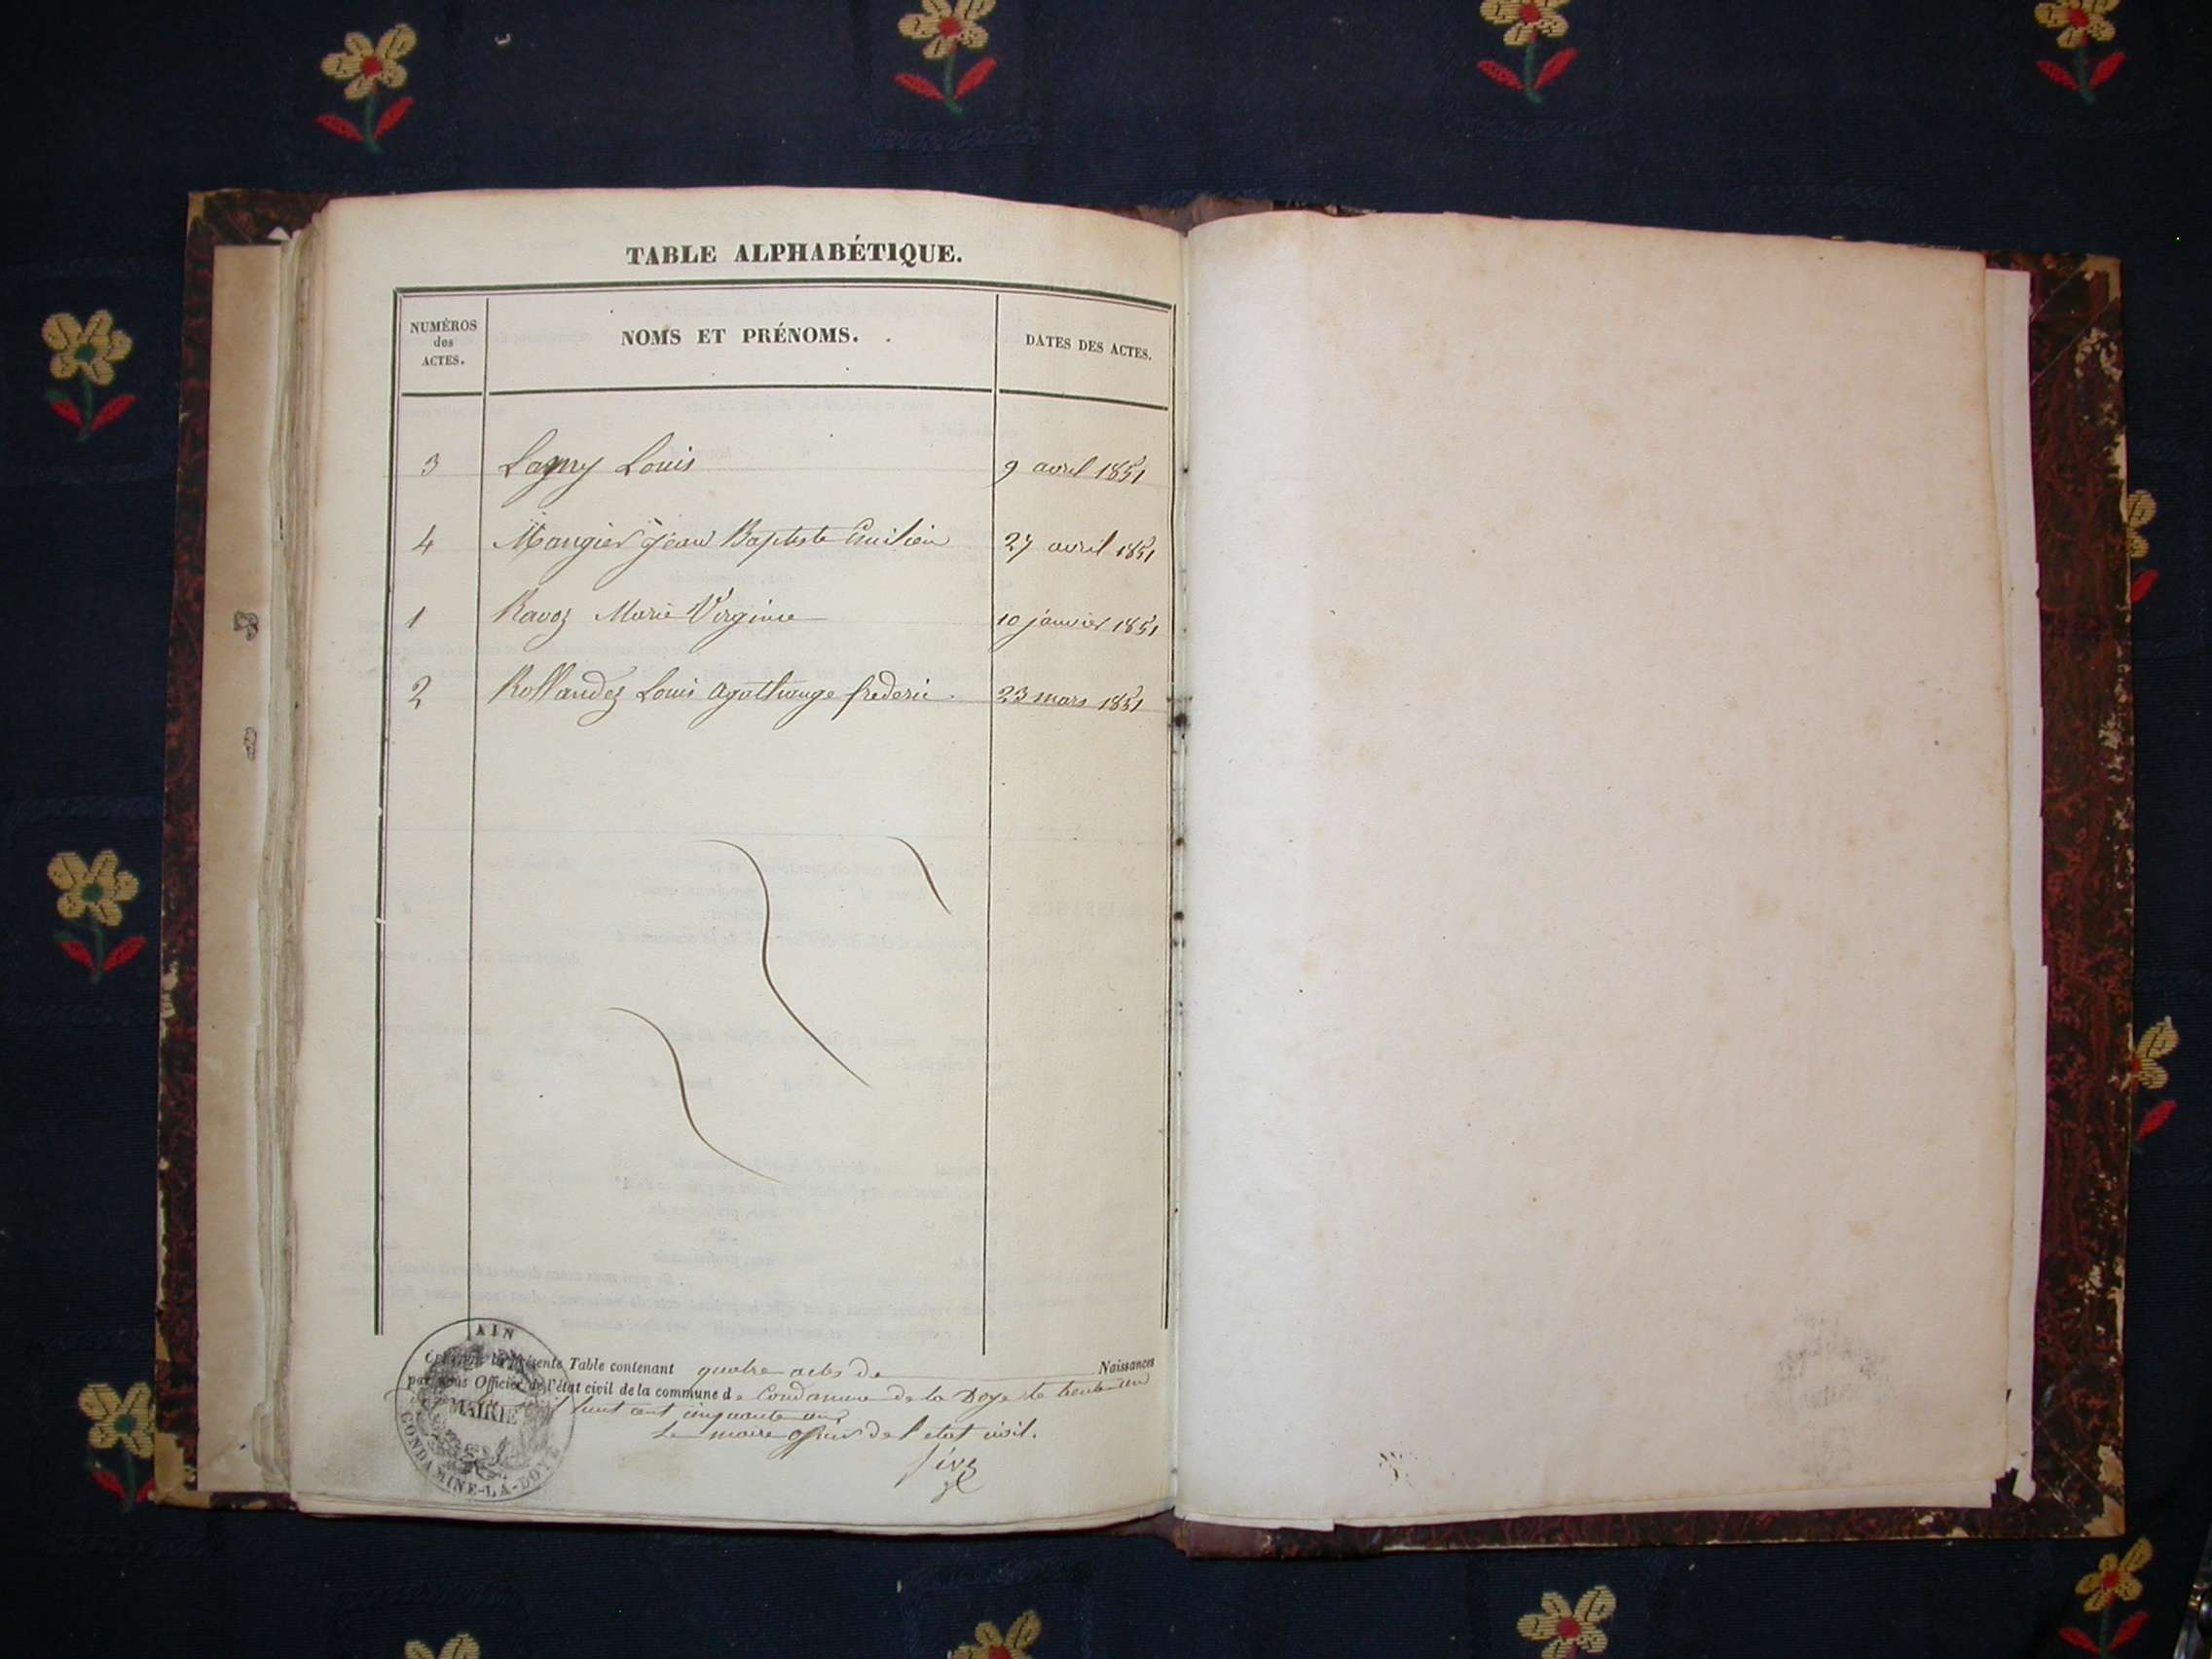 TABLE ALPHABÉTIQUE.
NUMÉROS
des
ACTES.
NOMS ET PRÉNOMS.
DATES DES ACTES.
3 Louis 9 avril 1851
4 Maugier Jean Baptiste Emilien 27 avril 1851
1 Ravoz Marie Virginie 10 janvier 1851
2 Rollandez Louis agathange frederic 23 mars 1851
présente Table contenant quatre actes de Naissances
par nous Officier de l'état civil de la commune de Condamine de la Doye le trente un
huit cent cinquante un
Le maire officier de l'etat civil.
AIN
MAIRIE
CONDAMINE-LA-DOYE